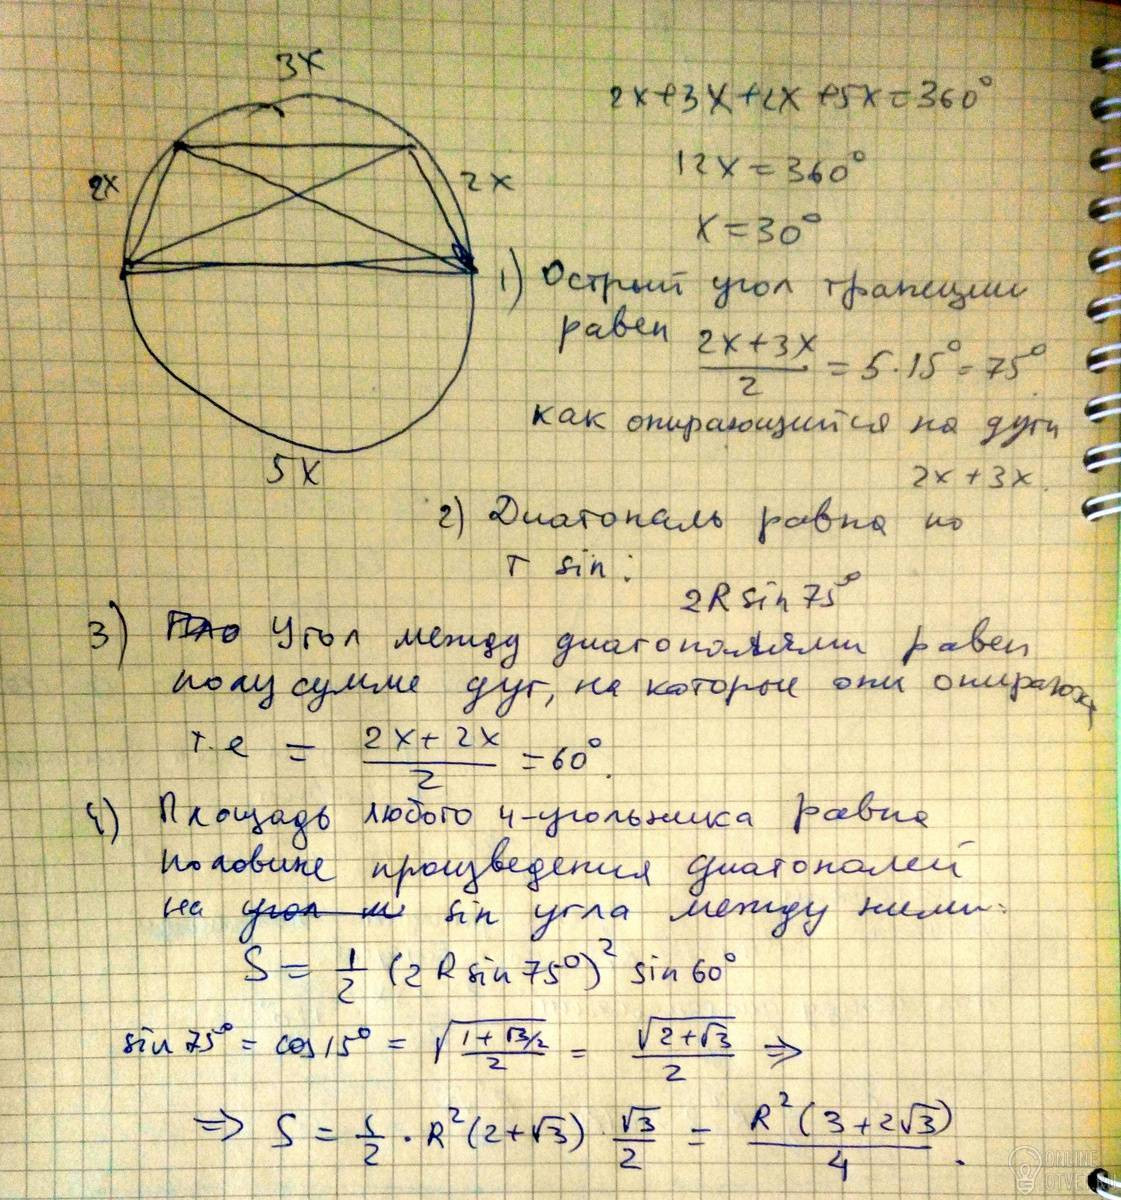 3x
2x
2x
5x
2x+3x+2x+5x=360°
12x=360°
x=30°
1) Острый угол трапеции
равен (2x+3x)/2 = 5·15° = 75°
как опирающийся на дуги
2x+3x.
2) Диагональ равна по
т sin:
2R sin 75°
3) Угол между диагоналями равен
полусумме дуг, на которые они опираются
т.е = (2x+2x)/2 = 60°.
4) Площадь любого 4-угольника равна
половине произведения диагоналей
на sin угла между ними:
S = 1/2 (2R sin 75°)² sin 60°
sin 75° = cos 15° = √((1+√3/2)/2) = √(2+√3)/2 ⇒
⇒ S = 1/2 · R²(2+√3) · √3/2 = R²(3+2√3)/4.
ONLINE
OTVET.RU